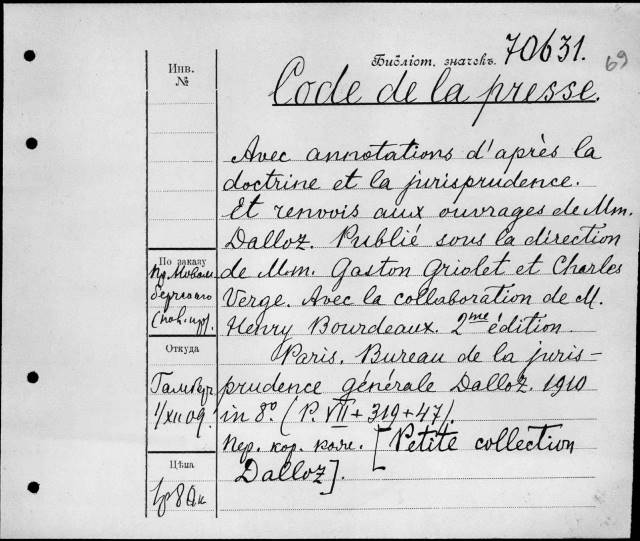 Библіот. значекъ. 70631.
69
Инв.
№
Code de la presse.
Avec annotations d'après la
doctrine et la jurisprudence.
Et renvois aux ouvrages de Mm.
Dalloz. Publié sous la direction
de Mm. Gaston Griolet et Charles
Verge. Avec la collaboration de M.
Henry Bourdeaux. 2me édition.
Paris. Bureau de la juris-
prudence générale Dalloz. 1910
in 8º. (P. VII + 319 + 47).
Пер. кор. коле. [Petite collection
Dalloz].
По заказу
Откуда
1/XII 09.
Цѣна